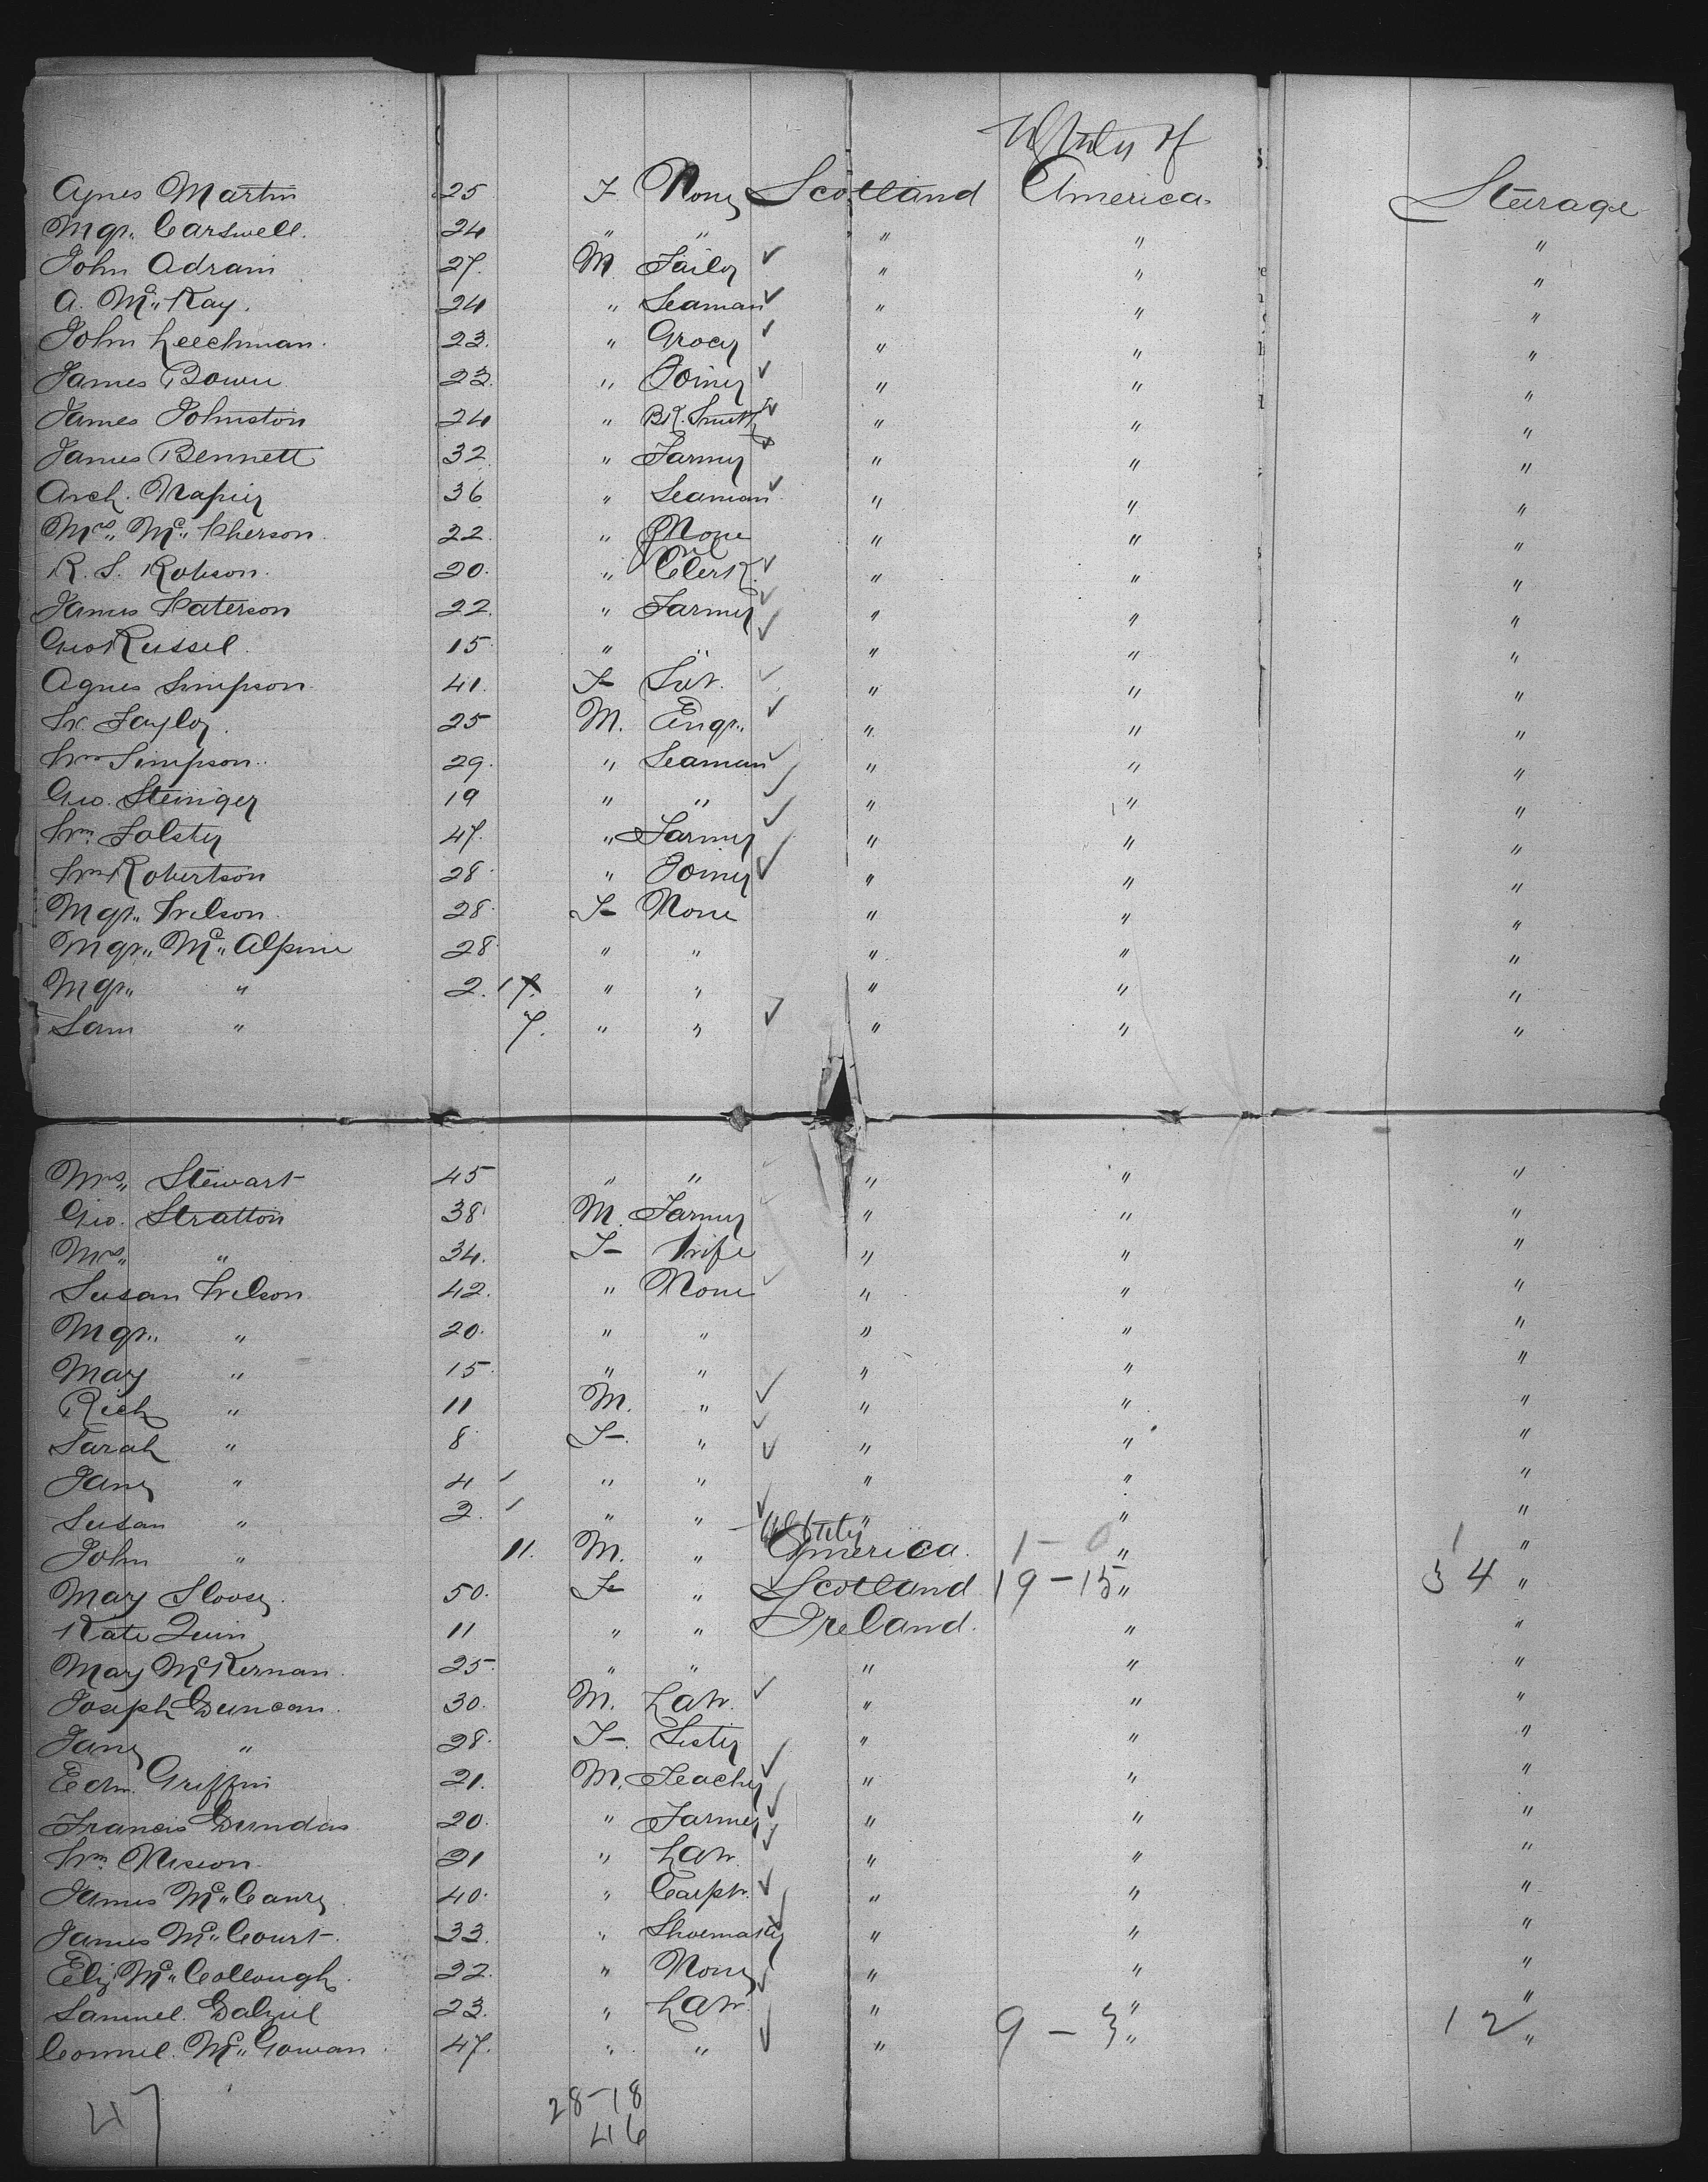 U States of
Agnes Martin 25 F None Scotland America Steerage
Mgr. Carswell. 24 " " " " "
John Adram 27. M Tailor " " "
A. Mc Kay. 24 " Seaman " " "
John Leechman. 23. " Grocer " " "
James Bowie 23. " Joiner " " "
James Johnston 24 " Bk. Smith " " "
James Bennett 32 " Farmer " " "
Arch. Napier 36 " Seaman " " "
Mrs. Mc Pherson. 22. " None " " "
R. S. Robson. 20. " Clerk. " " "
James Paterson 22. " Farmer " " "
Geo Russel. 15. " " " " "
Agnes Simpson. 41. F Sert. " " "
W. Taylor. 25 M. Engr. " " "
Wm Simpson. 29. " Seaman " " "
Geo. Steinger 19 " " " " "
Wm. Folster 47. " Farmer " " "
Wm Robertson 28. " Joiner " " "
Mgr. Wilson. 28. F None " " "
Mgr. Mc Alpine 28 " " " " "
Mgr. " 2. " " " " "
Sam " 7. " " " " "
Mrs. Stewart 45 " " " " "
Geo. Stratton 38 M. Farmer " " "
Mrs. " 34. F Wife " " "
Susan Wilson 42. " None " " "
Mgr. " 20. " " " " "
Mary " 15. " " " " "
Rich " 11 M. " " " "
Sarah " 8 F " " " "
Jane " 4 " " " " "
Susan " 2. " " " " "
John " 11. M. " America. 1 - 0 " 1 "
Mary Sloosy. 50. F " Scotland 19 - 15 " 34 "
Kate Quin 11 " " Ireland. " "
Mary McKernan. 25. " " " " "
Joseph Duncan. 30. M. Labr. " " "
Jane " 28. F. Sister " " "
Edm. Griffin 21. M. Teacher " " "
Francis Dundas 20. " Farmer " " "
Wm. Nixon. 21 " Labr. " " "
James Mc Canry 40. " Carptr. " " "
James Mc Court. 33. " Shoemaker " " "
Eliz Mc Collough. 22. " None " " "
Samuel Dalziel 23. " Labr. " " "
Connel. Mc Gowan. 47. " " " 9 - 3 " 12 "
47
28-18
46